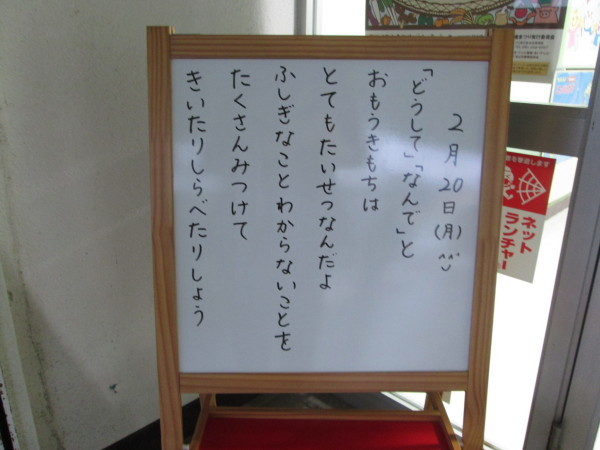 2月20日(月)^^
「どうして」「なんで」と
おもうきもちは
とてもたいせつなんだよ
ふしぎなことわからないことを
たくさんみつけて
きいたりしらべたりしょう
ネット
ランチャー